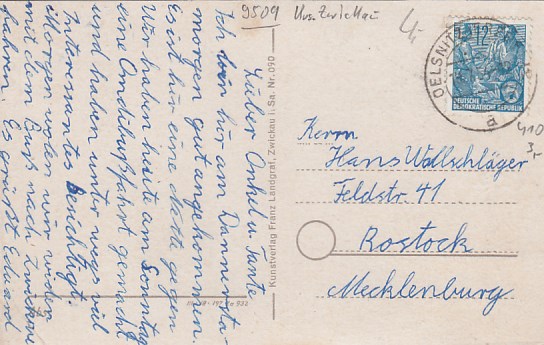 9509 Krs. Zwickau
4,-
OELSNITZ
12
DEUTSCHE
DEMOKRATISCHE REPUBLIK
a
410
3,-
Lieber Onkel u. Tante
Ich bin hir am Donnersta-
morgen gut angekommen.
Es ist hir eine nette gegen
Wir haben heite am Sonntag
eine Omnibusfahrt gemacht
und haben unter wegs viel
Interesantes Besichtigt,
Morgen wolen wir wider
mit dem Bus nach Zwickau
fahren. Es grüßt Eduard
Kunstverlag Franz Landgraf, Zwickau i. Sa. Nr. 090
Herrn
Hans Wallschläger
Feldstr. 41
Rostock
Mecklenburg